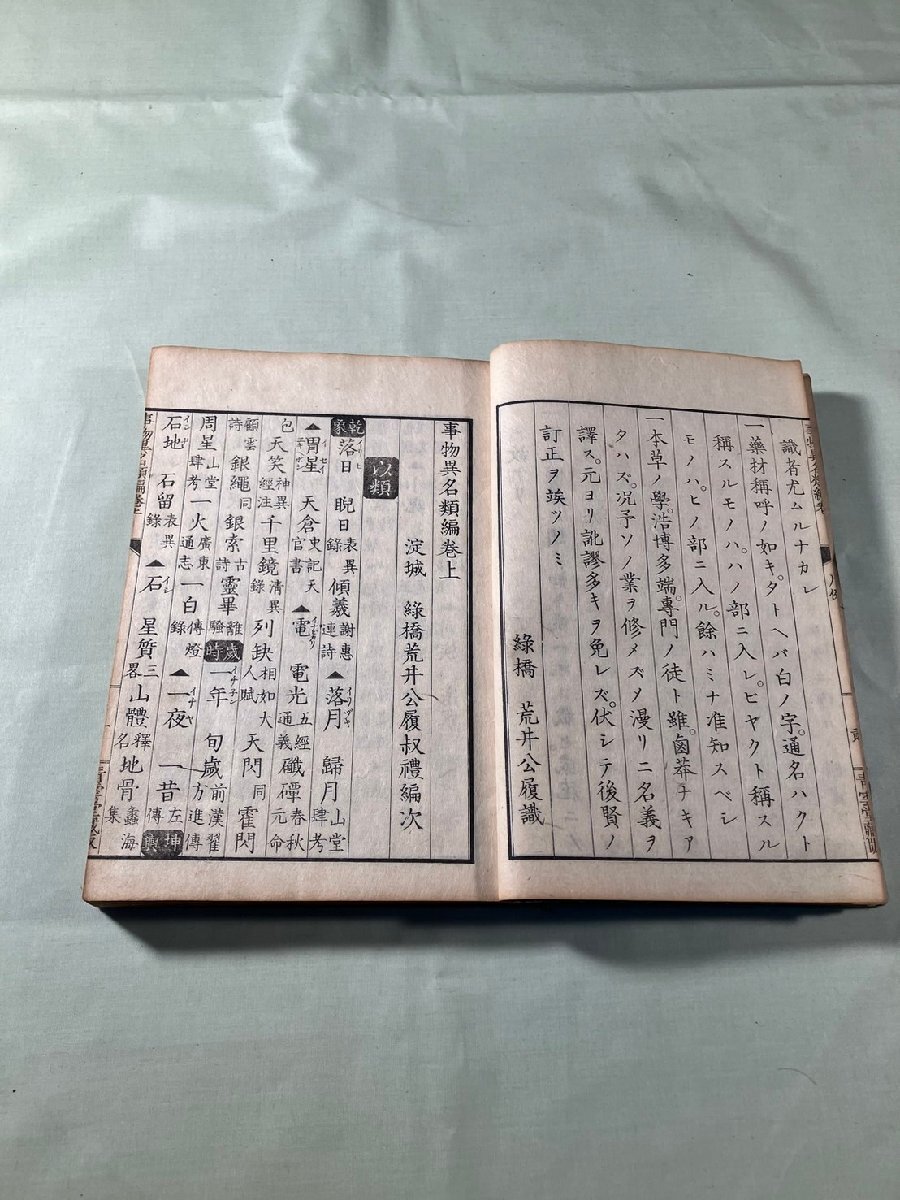 識者尤ムルナカレ
一藥材稱呼ノ如キ。タトヘバ白ノ字。通名ハクト
稱スルモノハ。ハノ部ニ入レ。ビヤクト稱スル
モノハ。ヒノ部ニ入ル。餘ハミナ准知スベシ
一本草ノ學。浩博多端。專門ノ徒ト雖。鹵莽ナキア
タハズ。况予ソノ業ヲ修メズ。メ漫リニ名義ヲ
譯ス。元ヨリ訛謬多キヲ免レズ。伏シテ後賢ノ
訂正ヲ竢ツノミ
綠橋 荒井公履識
事物異名類編卷上
淀城 綠橋荒井公履叔禮編次
以類
乾象 落日 睨日表異錄 傾羲謝惠連詩 ▲落月 歸月山堂肆考
▲胃星 天倉史記天官書 ▲電 電光五經通義 礮磹春秋元命
包 天笑神異經注 千里鏡清異錄 列缺相如大人賦 天閃同 霍閃
顧雲詩 銀繩同 銀索古詩 靈畢離騷 歲時 一年 旬歲前漢翟方進傳
周星山堂肆考 一火廣東通志 一白傳燈錄 ▲一夜 一昔左傳 坤輿
石地 石留表異錄 ▲石 星質三畧 山體釋名 地骨蠡海集